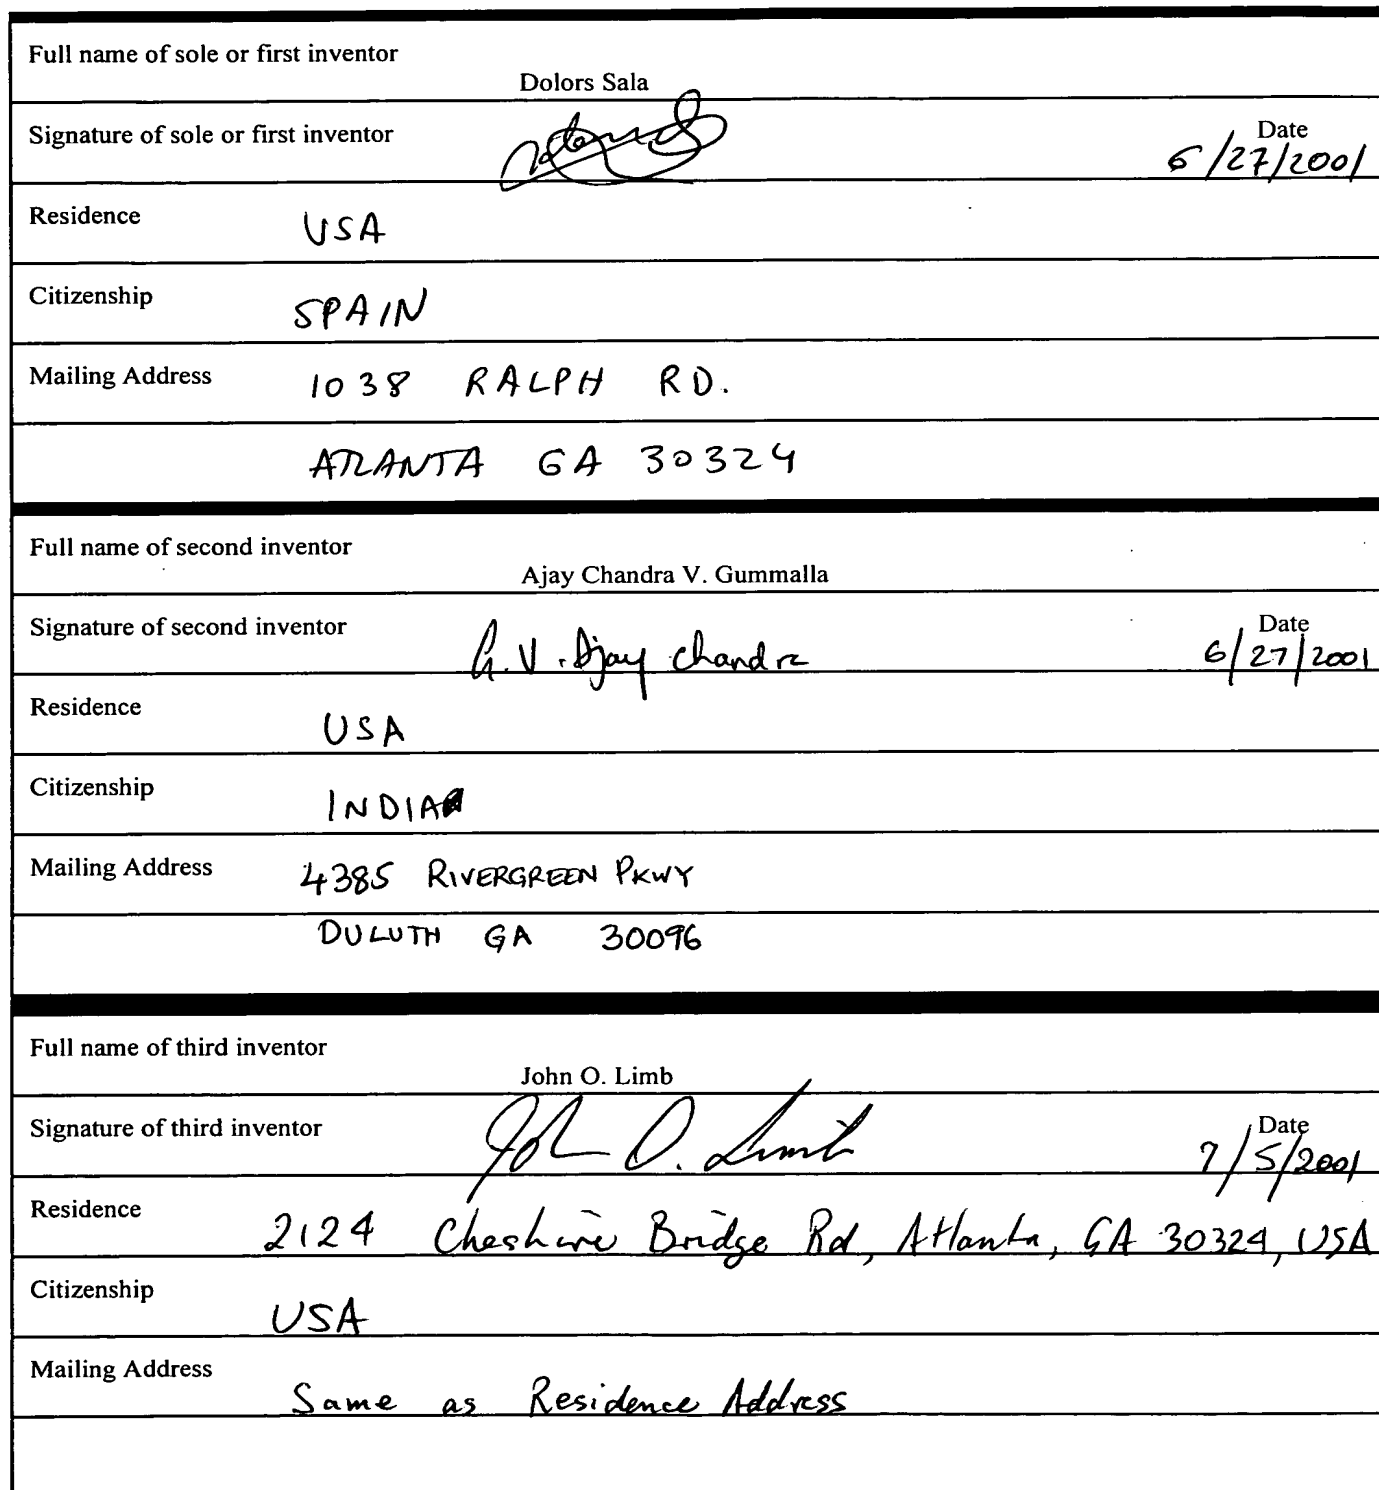 Full name of sole or first inventor
Dolors Sala
Signature of sole or first inventor Date
6/27/2001
Residence USA
Citizenship SPAIN
Mailing Address 1038 RALPH RD.
ATLANTA GA 30324
Full name of second inventor
Ajay Chandra V. Gummalla
Signature of second inventor G.V. Ajay Chandra Date
6/27/2001
Residence USA
Citizenship INDIA
Mailing Address 4385 RIVERGREEN PKWY
DULUTH GA 30096
Full name of third inventor
John O. Limb
Signature of third inventor John O. Limb Date
7/5/2001
Residence 2124 Cheshire Bridge Rd, Atlanta, GA 30324, USA
Citizenship USA
Mailing Address Same as Residence Address